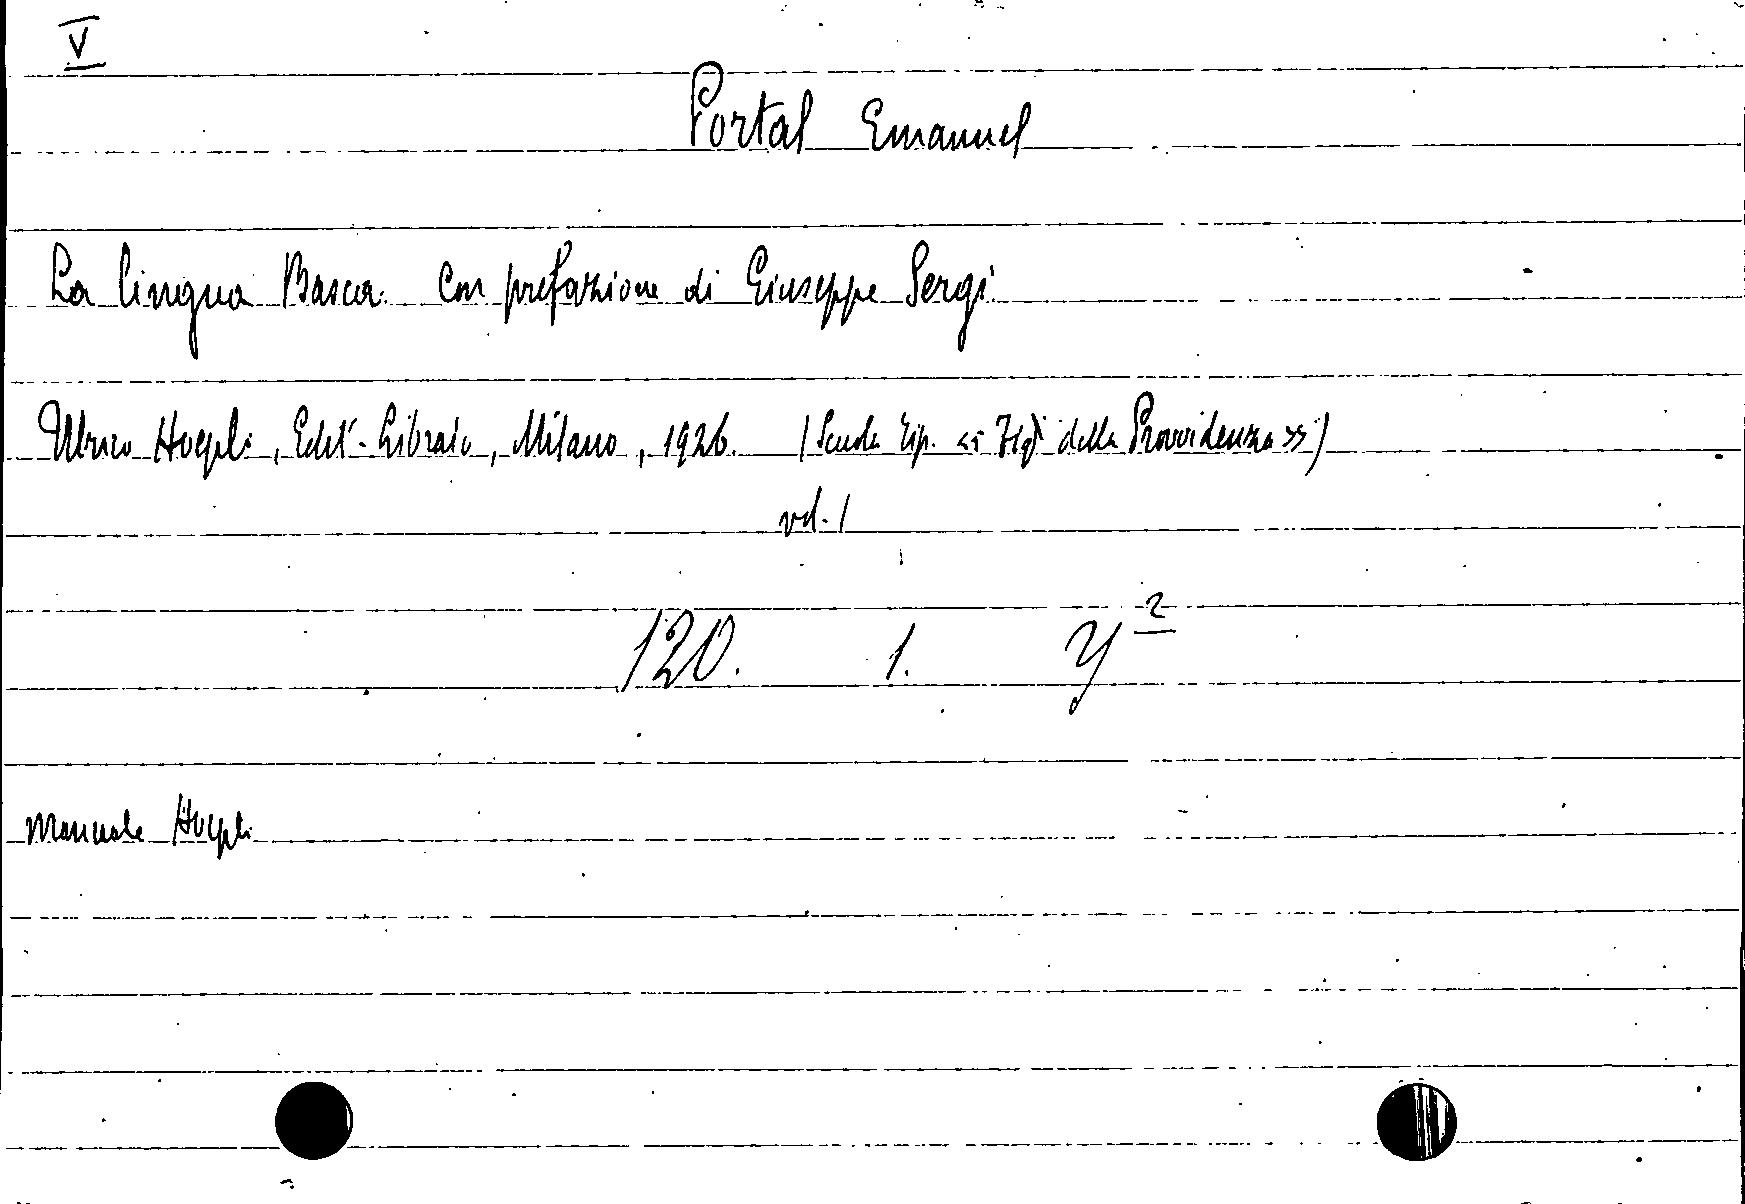 V
Portal Emanuel
La lingua Basca. Con prefazione di Giuseppe Sergi
Ulrico Hoepli, Edit.-Libraio, Milano, 1926. (Scuola Tip. « Figli della Provvidenza »)
vol. 1
120. 1. Y 2
Manuale Hoepli